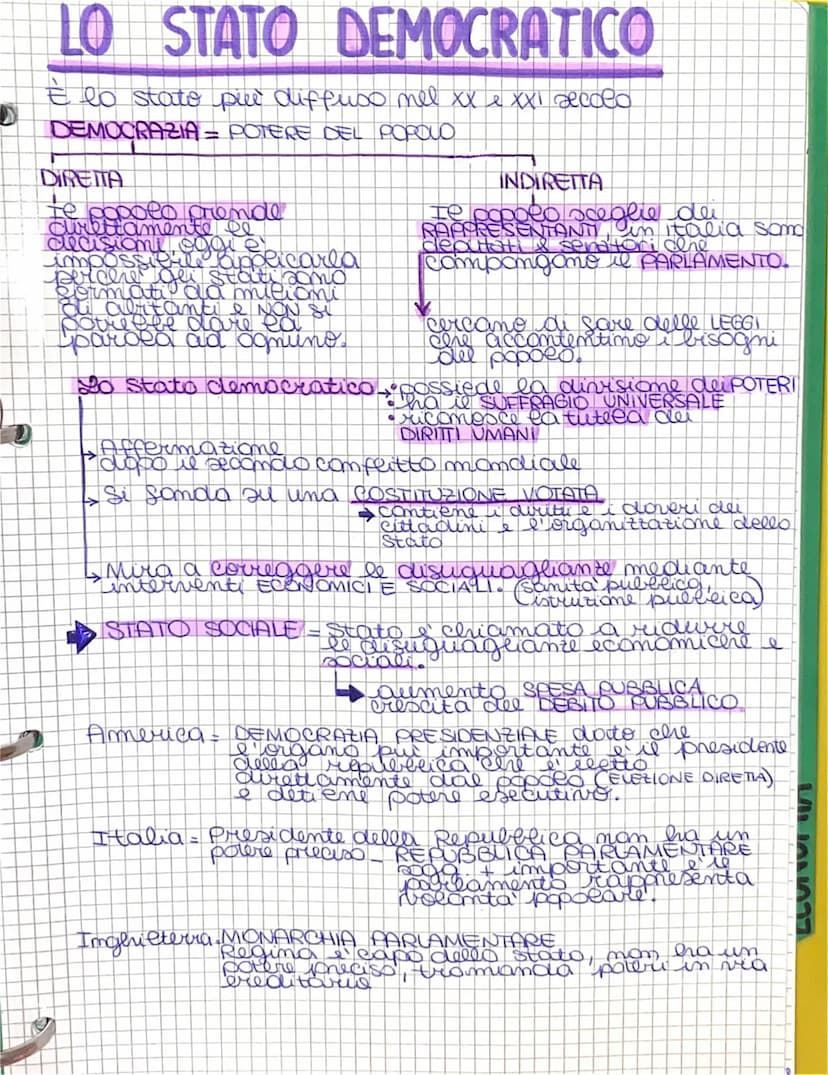 LO STATO DEMOCRATICO
È lo stato più diffuso nel XX e XXI secolo
DEMOCRAZIA = POTERE DEL POPOLO
DIRETTA
Il popolo prende
direttamente le
decisioni, oggi è
impossibile applicarla
perché gli stati sono
formati da milioni
di abitanti e NON si
potrebbe dare la
parola ad ognuno.
INDIRETTA
Il popolo sceglie dei
RAPPRESENTANTI, in italia sono
deputati e senatori che
compongono il PARLAMENTO.
cercano di fare delle LEGGI
che accontentino i bisogni
del popolo.
Lo Stato democratico → • possiede la divisione dei POTERI
• ha il SUFFRAGIO UNIVERSALE
• riconosce la tutela dei
DIRITTI UMANI
→ Affermazione
dopo il secondo conflitto mondiale
→ Si fonda su una COSTITUZIONE VOTATA
→ contiene i diritti e i doveri dei
cittadini e l'organizzazione dello
Stato
→ Mira a correggere le disuguaglianze mediante
interventi ECONOMICI E SOCIALI. (sanità pubblica,
istruzione pubblica)
→ STATO SOCIALE = Stato è chiamato a ridurre
le disuguaglianze economiche e
sociali.
→ aumento SPESA PUBBLICA
crescita del DEBITO PUBBLICO
America = DEMOCRAZIA PRESIDENZIALE dato che
l'organo più importante è il presidente
della repubblica che è eletto
direttamente dal popolo (ELEZIONE DIRETTA)
e detiene potere esecutivo.
Italia = Presidente della Repubblica non ha un
potere preciso - REPUBBLICA PARLAMENTARE
sogg. + importante è il
parlamento rappresenta
volontà popolare.
Inghilterra. MONARCHIA PARLAMENTARE
Regina è capo dello stato, non ha un
potere preciso, tramanda poteri in via
ereditaria
ECONOMIA